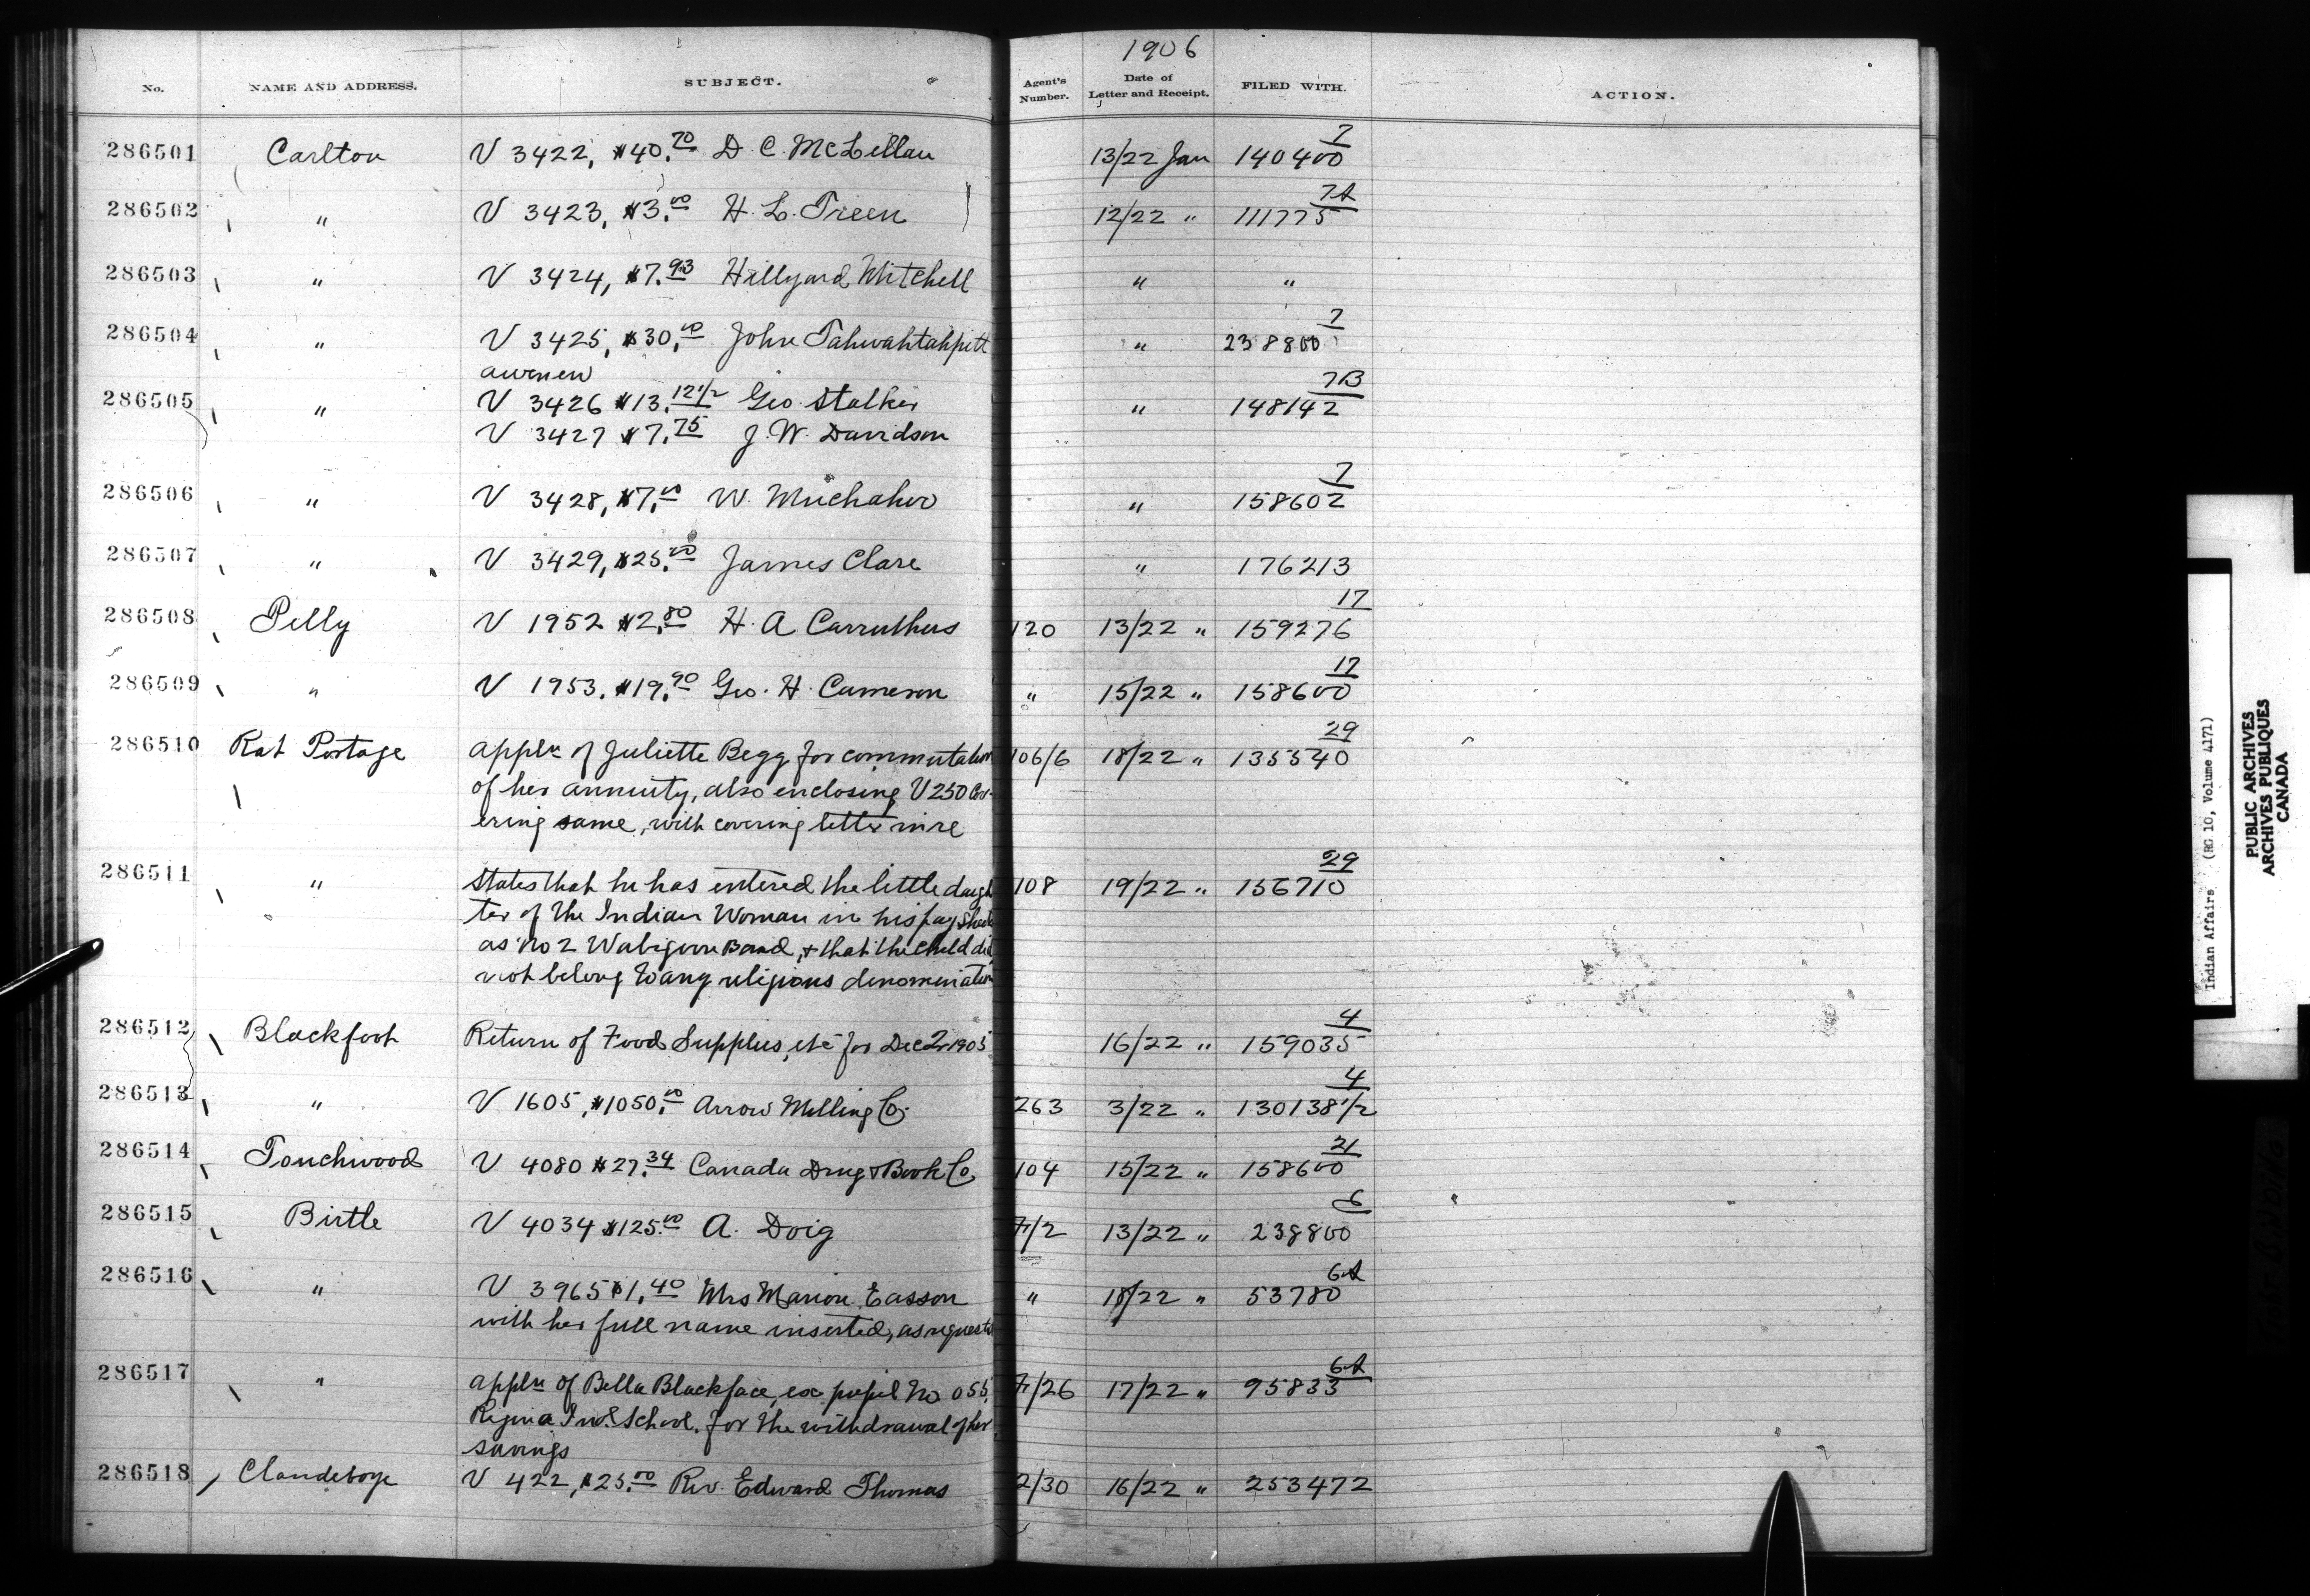 1906
No. NAME AND ADDRESS. SUBJECT. Agent's Number. Date of Letter and Receipt. FILED WITH. ACTION.
7
286501 Carlton V 3422, $40.70 D. C. McLellan 13/22 Jan 140400
7A
286502 " V 3423, $3.00 H. L. Treen 12/22 " 111775
286503 " V 3424, $7.93 Hillyard Mitchell " "
7
286504 " V 3425, $30.00 John Tahwahtahpitt " 238800
awenew
7B
286505 " V 3426 $13.12 1/2 Geo. Stalker " 148142
V 3427 $7.75 J. W. Davidson
7
286506 " V 3428, $7.00 W. Muchahoo " 158602
286507 " V 3429, $25.00 James Clare " 176213
17
286508 Pelly V 1952 $2.80 H. A. Carruthers 120 13/22 " 159276
17
286509 " V 1953. $19.90 Geo. H. Cameron " 15/22 " 158600
29
286510 Rat Portage Appln of Juliette Begg for commutation 106/6 18/22 " 135540
of her annuity, also enclosing V 250 Cov-
ering same, with covering letter in re
29
286511 " States that he has entered the little daugh 108 19/22 " 156710
ter of the Indian Woman in his pay Sheets
as No 2 Wabigoon Band, & that the child did
not belong to any religious denomination
4
286512 Blackfoot Return of Food Supplies, etc for Dec 1905 16/22 " 159035
4
286513 " V 1605, $1050.00 Arrow Milling Co. 263 3/22 " 130138 1/2
21
286514 Touchwood V 4080 $27.34 Canada Drug & Book Co 104 15/22 " 158600
6
286515 Birtle V 4034 $125.00 A. Doig 7/2 13/22 " 238800
6A
286516 " V 3965 $1.40 Mrs Marion Easson " 18/22 " 53780
with her full name inserted, as requested
6A
286517 " Appln of Bella Blackface, ex pupil No 055, 7/26 17/22 " 95833
Regina Ind. School. for the withdrawal of her
savings
286518 Clandeboye V 422, $25.00 Rev. Edward Thomas 2/30 16/22 " 253472
Indian Affairs (RG 10, Volume 4171)
PUBLIC ARCHIVES
ARCHIVES PUBLIQUES
CANADA